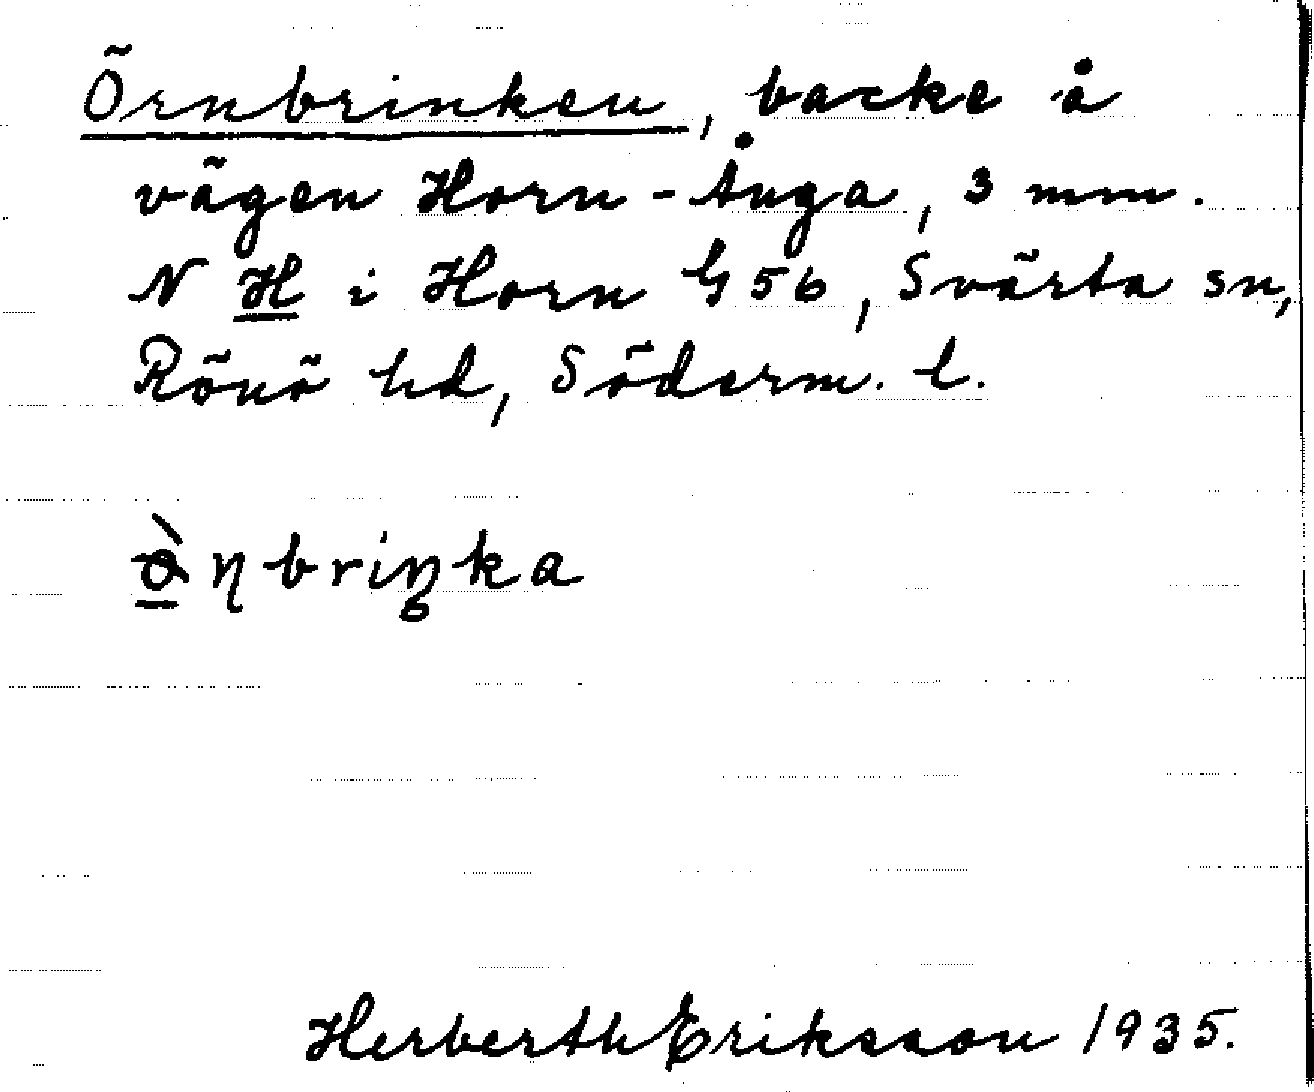 Örnbrinken, backe å
vägen Horn-Ånga, 3 mm.
N H i Horn G 56, Svärta sn,
Rönö hd, Söderm. l.
Herberth Eriksson 1935.